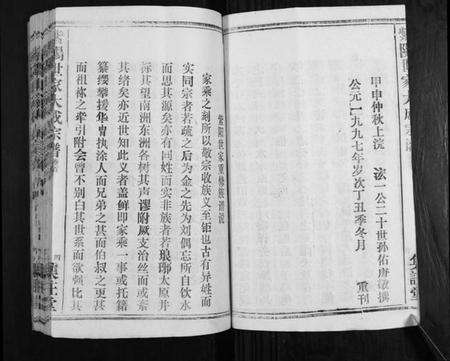 甲申仲秋上浣　泫一公二十世孙佑唐敬撰
公元一九九七年岁次丁丑季冬月　重刊
紫阳世家重修族谱说
家乘之刻所以敬宗收族义至钜也古有异姓而
实同宗者若疏之后为金之先为刘偶忘所自饮水
而思其源矣亦有同姓而实非族者若琅琊太原并
标其望南洲东洲各树其声谬附厥支治丝而或紊
其绪矣亦近世知此义者盖鲜即家乘一事或托籍
簪缨攀援华胄执涂人而兄弟之甚而伯叔之更甚
而祖祢之牵引附会曾不别白其世系而欲类比其
紫阳世家大成宗谱
四